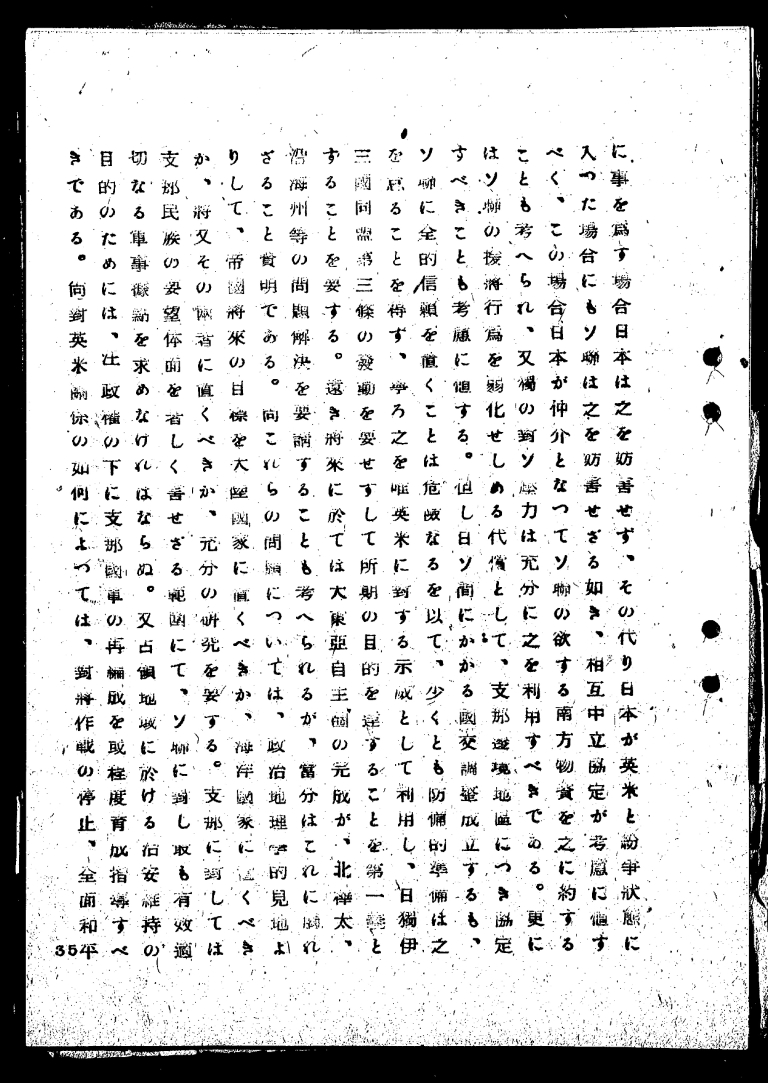 に事を爲す場合日本は之を妨害せず、その代り日本が英米と紛爭狀態に
入つた場合にもソ聯は之を妨害せざる如き、相互中立協定が考慮に値す
べく、この場合日本が仲介となつてソ聯の欲する南方物資を之に約する
ことも考へられ、又獨の對ソ壓力は充分に之を利用すべきである。更に
はソ聯の援蔣行爲を弱化せしめる代償として、支那邊境地區につき協定
すべきことも考慮に値する。但し日ソ間にかかる國交調整成立するも、
ソ聯に全的信賴を置くことは危險なるを以て、少くとも防備的準備は之
を怠ることを得ず、寧ろ之を唯英米に對する示威として利用し、日獨伊
三國同盟第三條の發動を要せずして所期の目的を達することを第一義と
することを要する。遠き將來に於ては大東亞自主圈の完成が、北樺太、
沿海州等の問題解決を要請することも考へられるが、當分はこれに觸れ
ざること賢明である。尙これらの問題については、政治地理學的見地よ
りして、帝國將來の目標を大陸國家に置くべきか、海洋國家に置くべき
か、將又その兩者に置くべきか、充分の硏究を要する。支那に對しては
支那民族の要望体面を著しく害せざる範圍にて、ソ聯に對し最も有效適
切なる軍事據點を求めなければならぬ。又占領地域に於ける治安維持の
目的のためには、汪政權の下に支那國軍の再編成を或程度育成指導すべ
きである。尙對英米關係の如何によつては、對蔣作戰の停止、全面和平
35